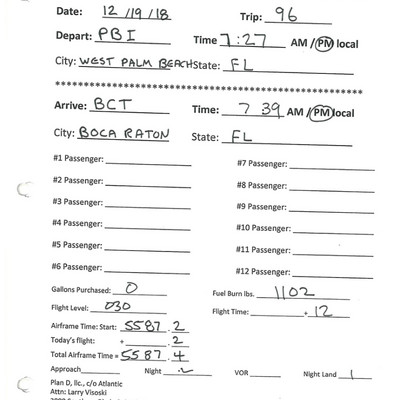 Date: 12/19/18 Trip: 96
Depart: PBI Time 7:27 AM / PM local
City: WEST PALM BEACH State: FL
**************************************************
Arrive: BCT Time: 7 39 AM / PM local
City: BOCA RATON State: FL
#1 Passenger: #7 Passenger:
#2 Passenger: #8 Passenger:
#3 Passenger: #9 Passenger:
#4 Passenger: #10 Passenger:
#5 Passenger: #11 Passenger:
#6 Passenger: #12 Passenger:
Gallons Purchased: 0 Fuel Burn lbs. 1102
Flight Level: 030 Flight Time: .12
Airframe Time: Start: 5587.2
Today's flight: + .2
Total Airframe Time = 5587.4
Approach Night .2 VOR Night Land 1
Plan D, llc., c/o Atlantic
Attn: Larry Visoski